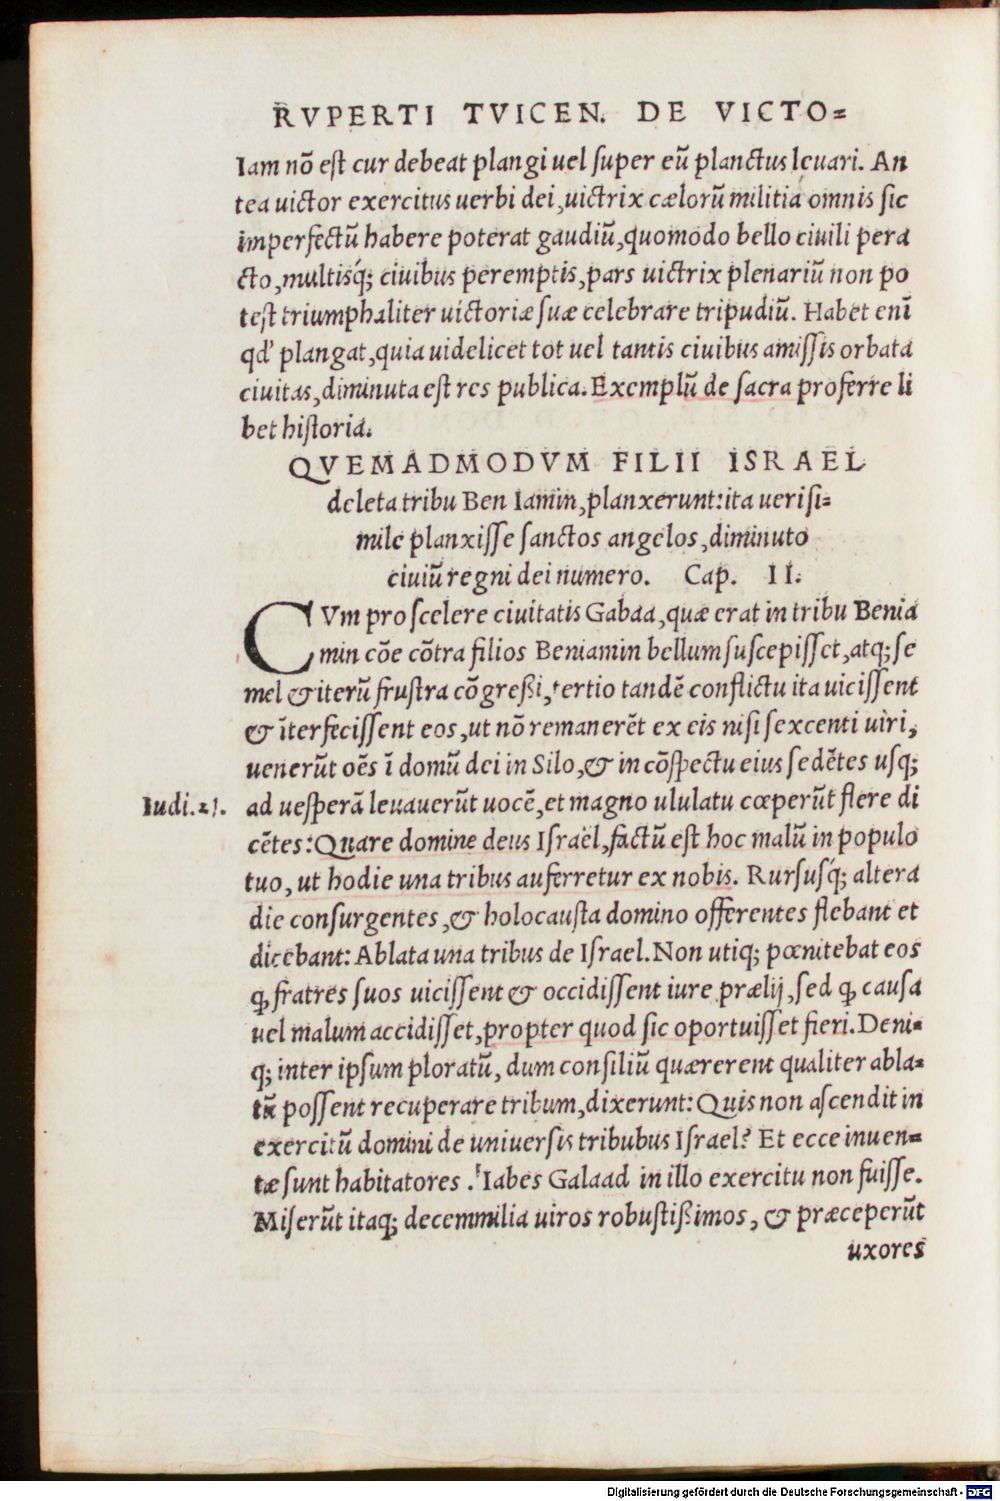 RVPERTI TVICEN. DE VICTO=
Iam nō est cur debeat plangi uel super eū planctus leuari. An
tea uictor exercitus uerbi dei, uictrix cælorū militia omnis sic
imperfectū habere poterat gaudiū, quomodo bello ciuili pera
cto, multisq́; ciuibus peremptis, pars uictrix plenariū non po
test triumphaliter uictoriæ suæ celebrare tripudiū. Habet enī
qd' plangat, quia uidelicet tot uel tantis ciuibus amissis orbata
ciuitas, diminuta est res publica. Exemplū de sacra proferre li
bet historia.
QVEMADMODVM FILII ISRAEL
deleta tribu Ben Iamin, planxerunt: ita uerisi=
mile planxisse sanctos angelos, diminuto
ciuiū regni dei numero. Cap. II.
CVm pro scelere ciuitatis Gabaa, quæ erat in tribu Benia
min cōe cōtra filios Beniamin bellum suscepisset, atq; se
mel & iterū frustra cōgreßi, tertio tandē conflictu ita uicissent
& īterfecissent eos, ut nō remanerēt ex eis nisi sexcenti uiri,
uenerūt oēs ī domū dei in Silo, & in cōspectu eius sedētes usq;
Iudi. 21. ad uesperā leuauerūt uocē, et magno ululatu cœperūt flere di
cētes: Quare domine deus Israel, factū est hoc malū in populo
tuo, ut hodie una tribus auferretur ex nobis. Rursusq́; altera
die consurgentes, & holocausta domino offerentes flebant et
dicebant: Ablata una tribus de Israel. Non utiq; pœnitebat eos
ꝙ fratres suos uicissent & occidissent iure prælij, sed ꝙ causa
uel malum accidisset, propter quod sic oportuisset fieri. Deni=
q; inter ipsum ploratū, dum consiliū quærerent qualiter abla=
tā possent recuperare tribum, dixerunt: Quis non ascendit in
exercitū domini de uniuersis tribubus Israel? Et ecce inuen=
tæ sunt habitatores . Iabes Galaad in illo exercitu non fuisse.
Miserūt itaq; decem milia uiros robustißimos, & præceperūt
uxores
Digitalisierung gefördert durch die Deutsche Forschungsgemeinschaft - DFG